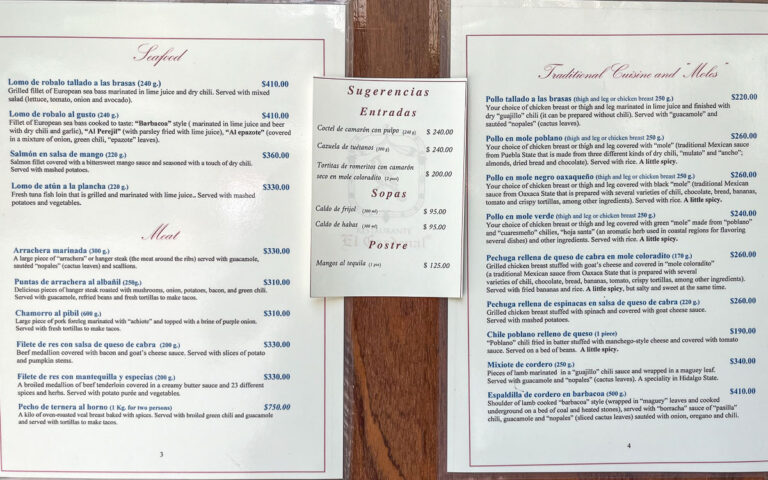 Seafood
Lomo de robalo tallado a las brasas (240 g.) $410.00
Grilled fillet of European sea bass marinated in lime juice and dry chili. Served with mixed
salad (lettuce, tomato, onion and avocado).
Lomo de robalo al gusto (240 g.) $410.00
Fillet of European sea bass cooked to taste: "Barbacoa" style ( marinated in lime juice and beer
with dry chili and garlic), "Al Perejil" (with parsley fried with lime juice), "Al epazote" (covered
in a mixture of onion, green chili, "epazote" leaves).
Salmón en salsa de mango (220 g.) $360.00
Salmon fillet covered with a bittersweet mango sauce and seasoned with a touch of dry chili.
Served with mashed potatoes.
Lomo de atún a la plancha (220 g.) $330.00
Fresh tuna fish loin that is grilled and marinated with lime juice.. Served with mashed
potatoes and vegetables.
Meat
Arrachera marinada (300 g.) $330.00
A large piece of "arrachera" or hanger steak (the meat around the ribs) served with guacamole,
sautéed "nopales" (cactus leaves) and scallions.
Puntas de arrachera al albañil (250g.) $310.00
Delicious pieces of hanger steak roasted with mushrooms, onion, potatoes, bacon, and green chili.
Served with guacamole, refried beans and fresh tortillas to make tacos.
Chamorro al pibil (600 g.) $310.00
Large piece of pork foreleg marinated with "achiote" and topped with a brine of purple onion.
Served with fresh tortillas to make tacos.
Filete de res con salsa de queso de cabra (200 g.) $330.00
Beef medallion covered with bacon and goat's cheese sauce. Served with slices of potato
and pumpkin stems.
Filete de res con mantequilla y especias (200 g.) $330.00
A broiled medallion of beef tenderloin covered in a creamy butter sauce and 23 different
spices and herbs. Served with potato purée and vegetables.
Pecho de ternera al horno (1 Kg. for two persons) $750.00
A kilo of oven-roasted veal breast baked with spices. Served with broiled green chili and guacamole
and served with tortillas to make tacos.
3
Sugerencias
Entradas
Coctel de camarón con pulpo (240 g) $ 240.00
Cazuela de tuétanos $ 240.00
Tortitas de romeritos con camarón
seco en mole coloradito (2 pzas) $ 200.00
Sopas
Caldo de frijol (300 ml) $ 95.00
Caldo de habas (300 ml) $ 95.00
Postre
Mangos al tequila $ 125.00
Traditional Cuisine and "Moles"
Pollo tallado a las brasas (thigh and leg or chicken breast 250 g.) $220.00
Your choice of chicken breast or thigh and leg marinated in lime juice and finished with
dry "guajillo" chili (it can be prepared without chili). Served with "guacamole" and
sautéed "nopales" (cactus leaves).
Pollo en mole poblano (thigh and leg or chicken breast 250 g.) $260.00
Your choice of chicken breast or thigh and leg covered with "mole" (traditional Mexican
sauce from Puebla State that is made from three different kinds of dry chili, "mulato" and "ancho";
almonds, dried bread and chocolate). Served with rice. A little spicy.
Pollo en mole negro oaxaqueño (thigh and leg or chicken breast 250 g.) $260.00
Your choice of chicken breast or thigh and leg covered with black "mole" (traditional Mexican
sauce from Oaxaca State that is prepared with several varieties of chili, chocolate, bread, bananas,
tomato and crispy tortillas, among other ingredients). Served with rice. A little spicy.
Pollo en mole verde (thigh and leg or chicken breast 250 g.) $240.00
Your choice of chicken breast or thigh and leg covered with green "mole" made from "poblano"
and "cuaresmeño" chilies, "hoja santa" (an aromatic herb used in coastal regions for flavoring
several dishes) and other ingredients. Served with rice. A little spicy.
Pechuga rellena de queso de cabra en mole coloradito (170 g.) $260.00
Grilled chicken breast stuffed with goat's cheese and covered in "mole coloradito"
(a traditional Mexican sauce from Oaxaca State that is prepared with several
varieties of chili, chocolate, bread, bananas, tomato, crispy tortillas, among other ingredients).
Served with fried bananas and rice. A little spicy, but salty and sweet at the same time.
Pechuga rellena de espinacas en salsa de queso de cabra (220 g.) $260.00
Grilled chicken breast stuffed with spinach and covered with goat cheese sauce.
Served with mashed potatoes.
Chile poblano relleno de queso (1 piece) $190.00
"Poblano" chili fried in batter stuffed with manchego-style cheese and covered with tomato
sauce. Served on a bed of beans. A little spicy.
Mixiote de cordero (250 g.) $340.00
Pieces of lamb marinated in a "guajillo" chili sauce and wrapped in a maguey leaf.
Served with guacamole and "nopales" (cactus leaves). A speciality in Hidalgo State.
Espaldilla de cordero en barbacoa (500 g.) $410.00
Shoulder of lamb cooked "barbacoa" style (wrapped in "maguey" leaves and cooked
underground on a bed of coal and heated stones), served with "borracha" sauce of "pasilla"
chili, guacamole and "nopales" (sliced cactus leaves) sautéed with onion, oregano and chili.
4